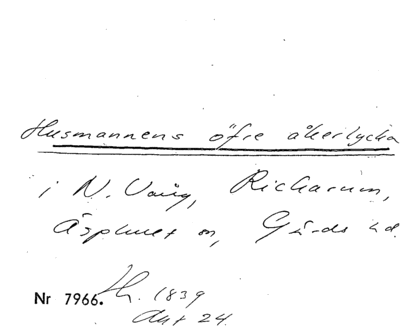 Husmannens öfre åkerlycka
i N. Vång, Richarum,
Äsphult sn, Gärds hd.
Nr 7966. Th. 1839
Akt 24.